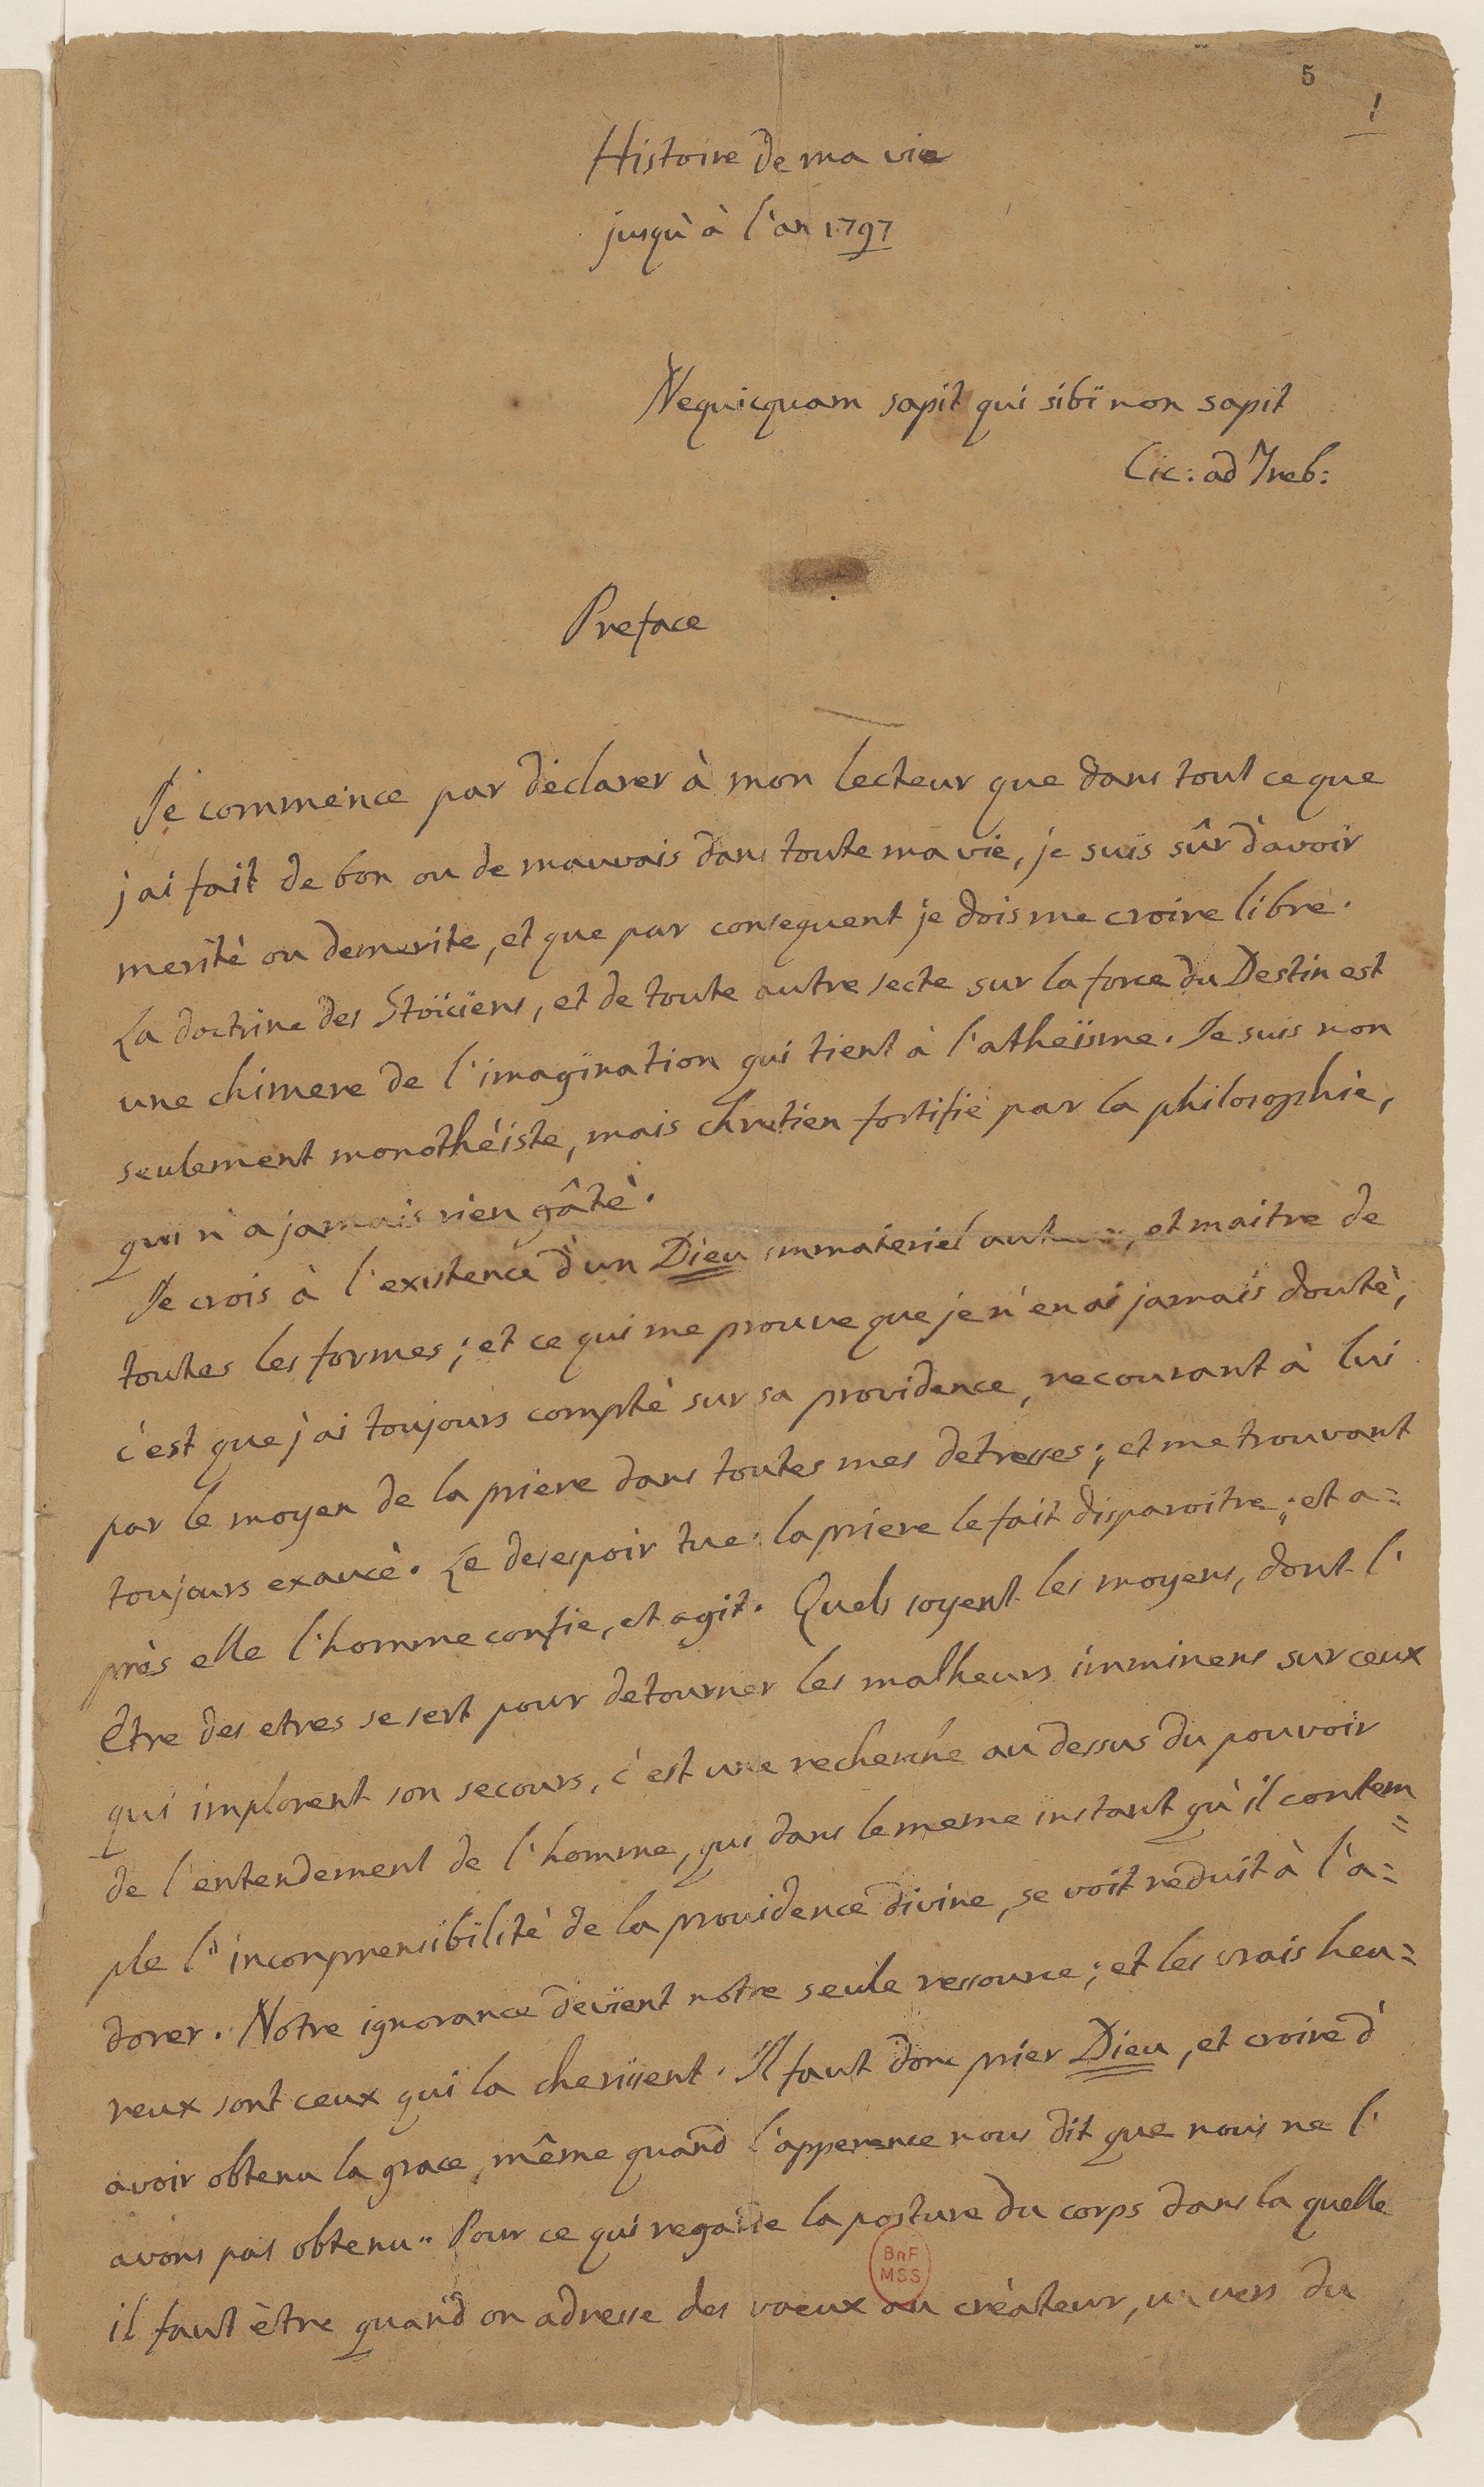 5
1
Histoire de ma vie
jusqu'à l'an 1797
Nequicquam sapit qui sibi non sapit
Cic: ad Treb:
Preface
Je commence par déclarer à mon lecteur que dans tout ce que
j'ai fait de bon ou de mauvais dans toute ma vie, je suis sûr d'avoir
merité ou demerite, et que par consequent je dois me croire libre.
La doctrine des Stoïciens, et de toute autre secte sur la force du Destin est
une chimere de l'imagination qui tient à l'atheïsme. Je suis non
seulement monothéiste, mais chretien fortifié par la philosophie,
qui n'a jamais rien gâté.
Je crois à l'existence d'un Dieu immateriel auteur, et maitre de
toutes les formes; et ce qui me prouve que je n'en ai jamais douté,
c'est que j'ai toujours compté sur sa providence, recourant à lui
par le moyen de la priere dans toutes mes detresses; et me trouvant
toujours exaucé. Le desespoir tue: la priere le fait disparoitre; et a=
près elle l'homme confie, et agit. Quels soyent les moyens, dont l'
Etre des etres se sert pour detourner les malheurs imminens sur ceux
qui implorent son secours, c'est une recherche au dessus du pouvoir
de l'entendement de l'homme, qui dans le meme instant qu'il contem=
ple l'incomprensibilité de la providence divine, se voit reduit à l'a=
dorer. Notre ignorance devient notre seule ressource; et les vrais heu=
reux sont ceux qui la cherissent. Il faut donc prier Dieu, et croire d'
avoir obtenu la grace, même quand l'apparence nous dit que nous ne l'
avons pas obtenu. Pour ce qui regarde la posture du corps dans la quelle
il faut être quand on adresse des voeux au créateur, un vers du
BnF
MSS